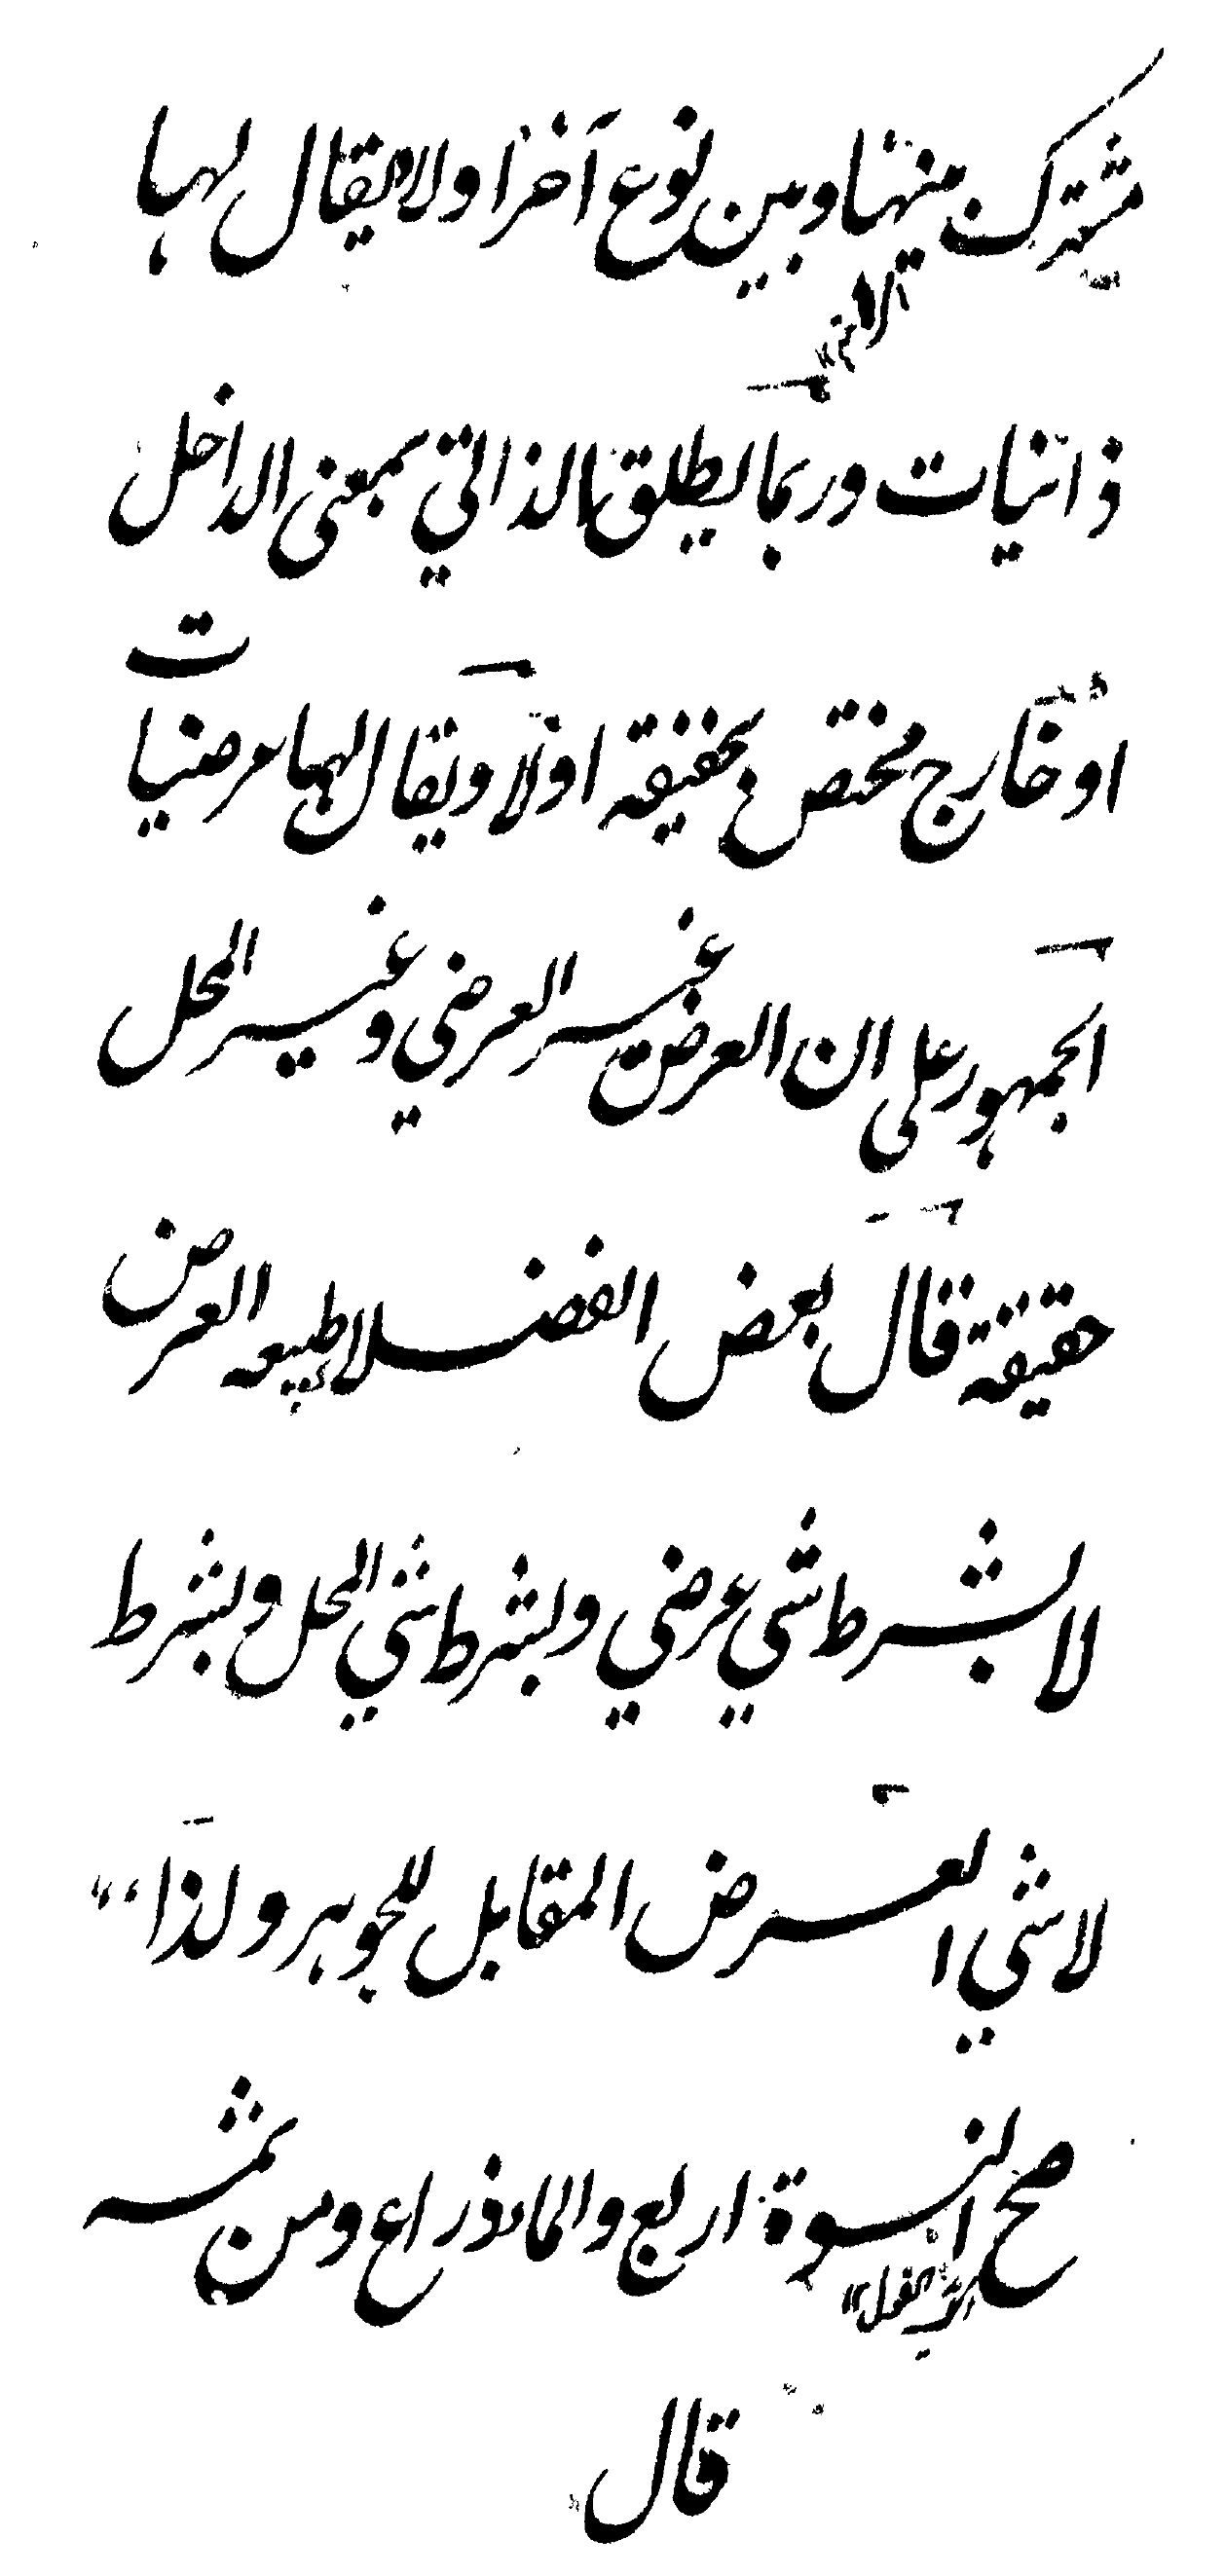 مشترك بينها وبين نوع آخر اولا ويقال لها
ذاتيات وربما يطلق الذاتي بمعنى الداخل
او خارج مختص بحقيقة اولا ويقال لها عرضيات
الجمهور على ان العرض غير العرضي وغير المحل
حقيقة قال بعض الفضلا طبيعة العرض
لا بشرط شي عرضي وبشرط شي المحل وبشرط
لا شي العرض المقابل للجوهر ولذا
صح النسوة اربع والماء ذراع ومن ثمه
قال